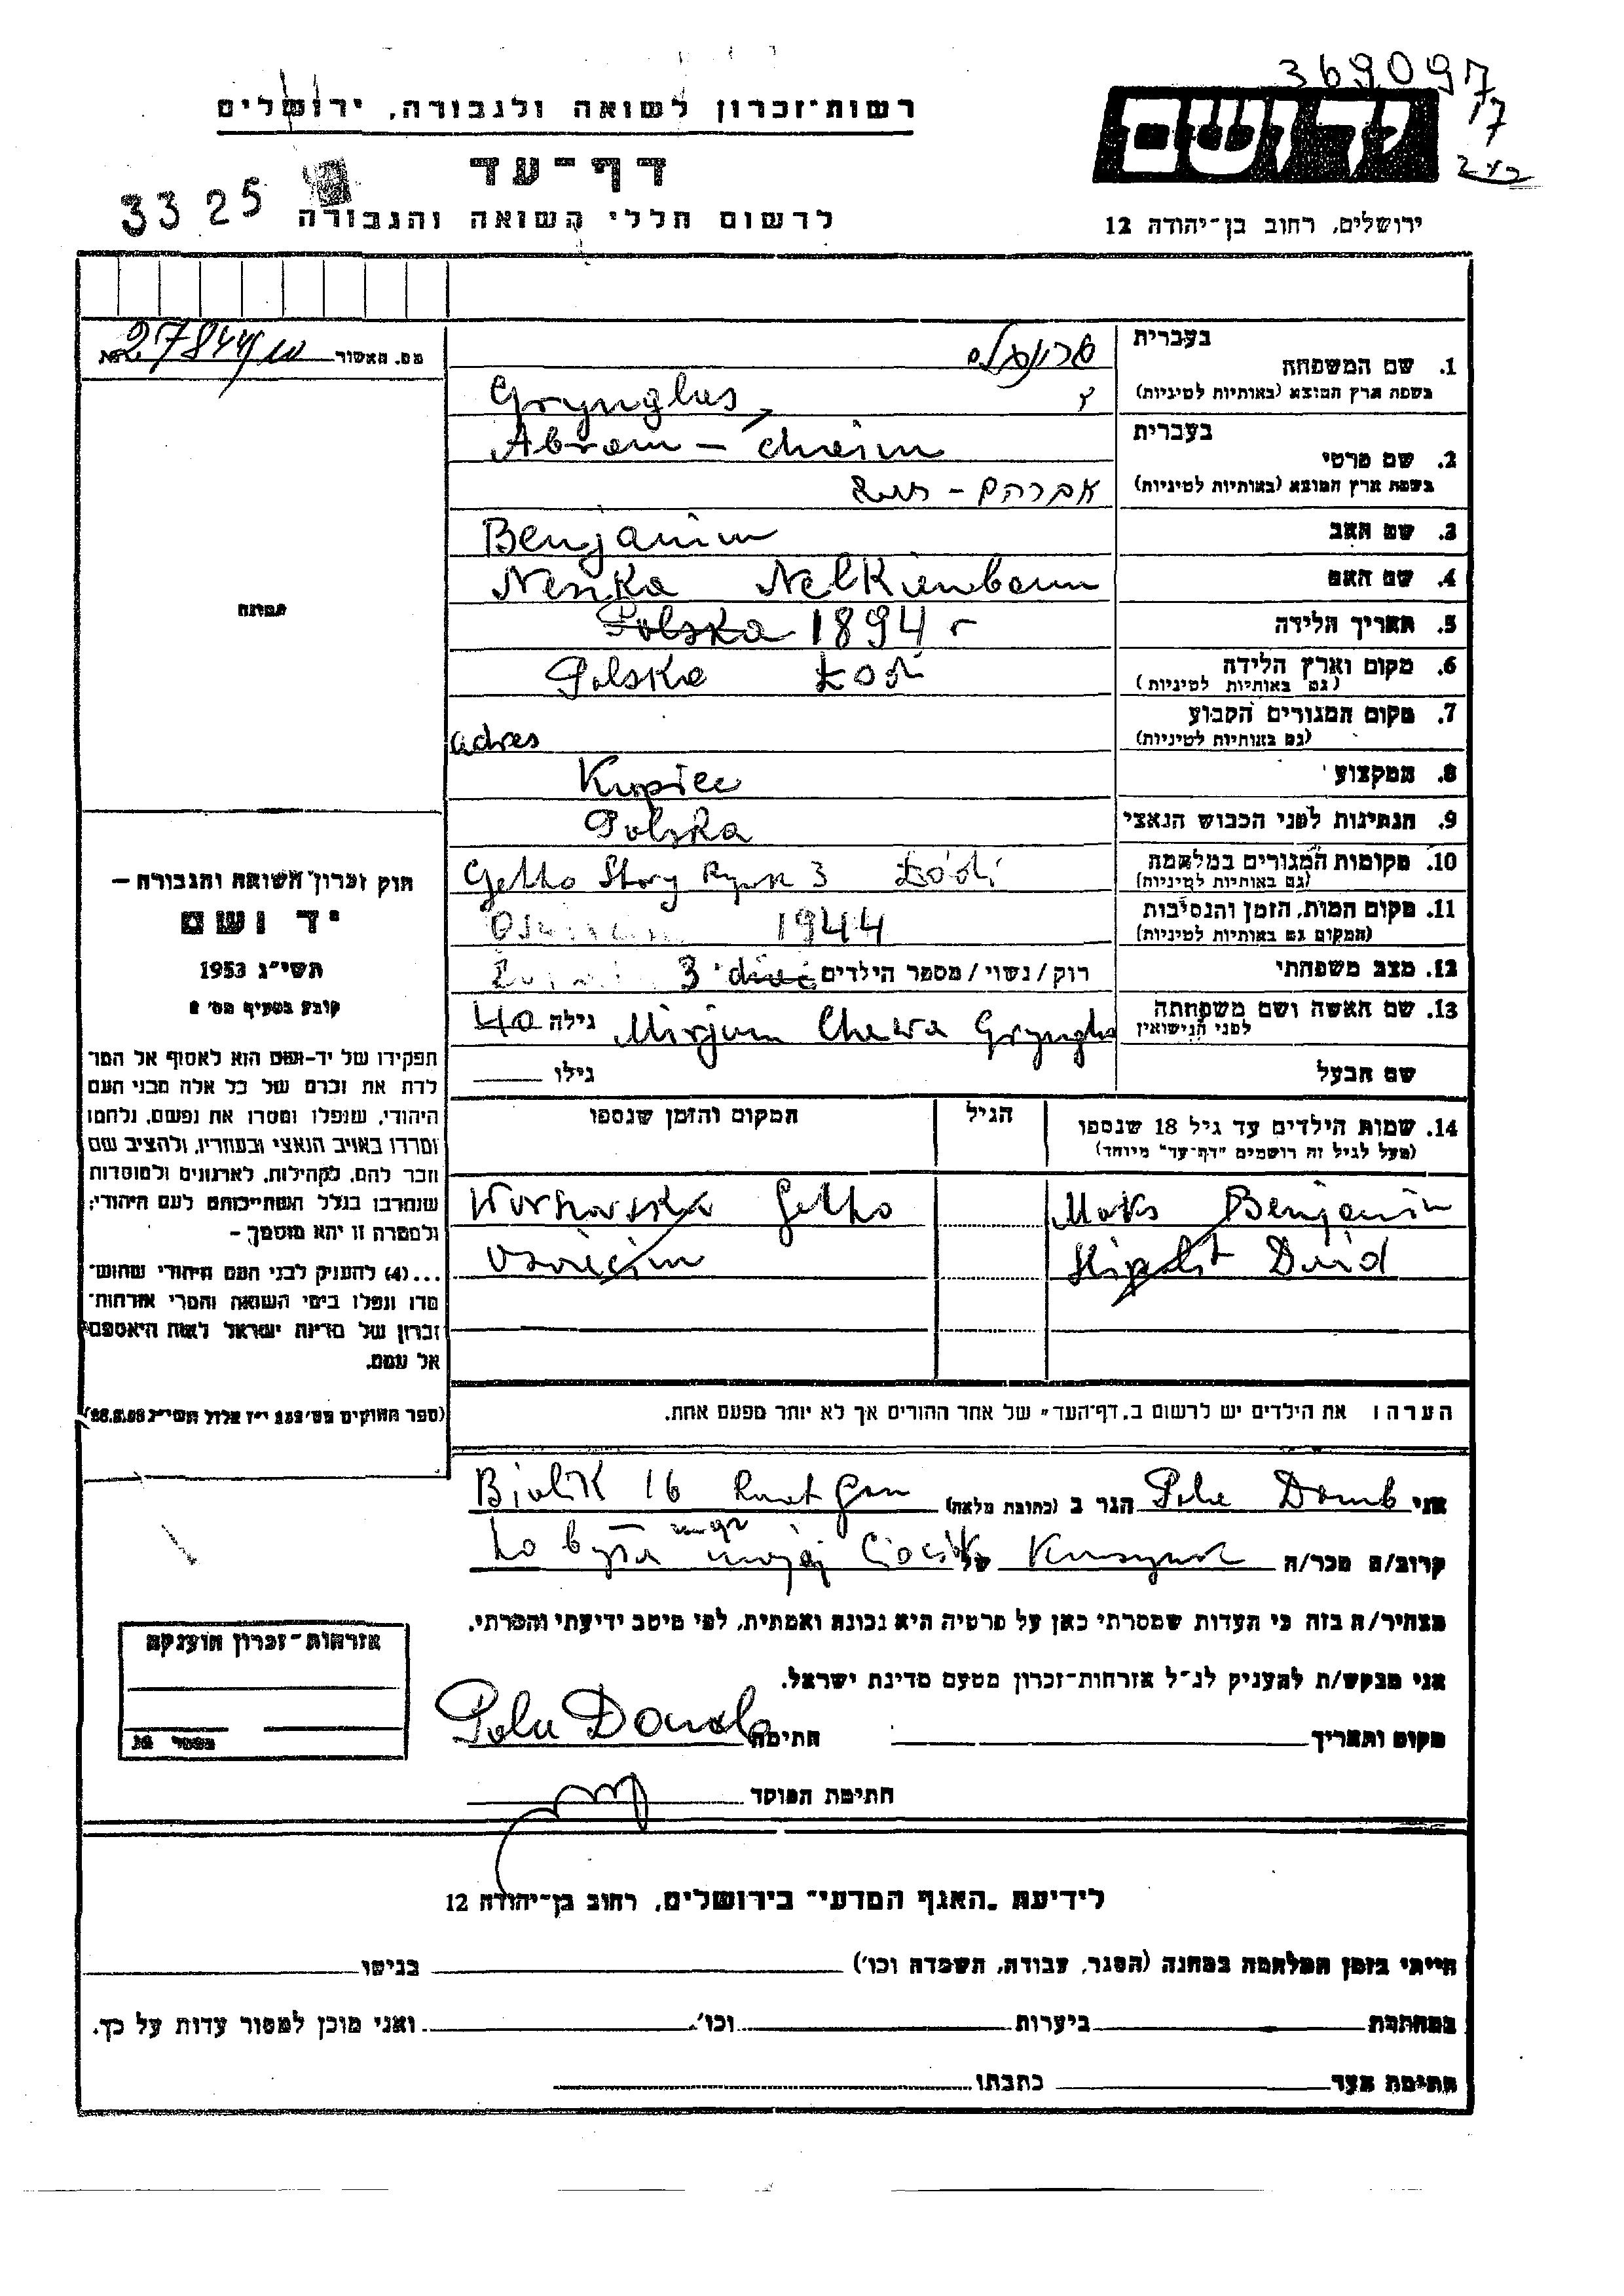 369097
17
רשות־זכרון לשואה ולגבורה, ירושלים
יד ושם
דף־עד
3325
לרשום חללי השואה והגבורה
ירושלים, רחוב בן־יהודה 12
מס. האשור
בעברית
1. שם המשפחה
בשפת ארץ המוצא (באותיות לטיניות)
Grynglas,
בעברית
Abram – Chaim
2. שם פרטי
בשפת ארץ המוצא (באותיות לטיניות)
אברהם – חיים
3. שם האב Benjamin
4. שם האם
5. תאריך הלידה Polska 1894 r
6. מקום וארץ הלידה Polska Łódź
(גם באותיות לטיניות)
7. מקום המגורים הקבוע
(גם באותיות לטיניות) adres
8. המקצוע Kupiec
9. הנתינות לפני הכבוש הנאצי Polska
10. מקומות המגורים במלחמה Getto Stary Rynek 3 Łódź
(גם באותיות לטיניות)
11. מקום המות, הזמן והנסיבות 1944
(המקום גם באותיות לטיניות)
12. מצב משפחתי רוק/נשוי/מספר הילדים 3
13. שם האשה ושם משפחתה Mirjam Chawa גילה 40
לפני הנישואין
שם הבעל גילו
14. שמות הילדים עד גיל 18 שנספו הגיל המקום והזמן שנספו
(מעל לגיל זה רושמים "דף־עד" מיוחד)
Maks Benjamin Getto
Dawid Oświęcim
הערה: את הילדים יש לרשום ב„דף־העד" של אחד ההורים אך לא יותר מפעם אחת.
תמונה
חוק זכרון השואה והגבורה —
יד ושם
תשי"ג 1953
קובע בסעיף מס׳ 2
תפקידו של יד־ושם הוא לאסוף אל המו־
לדת את זכרם של כל אלה מבני העם
היהודי, שנפלו ומסרו את נפשם, נלחמו
ומרדו באויב הנאצי ובעוזריו, ולהציב שם
וזכר להם, לקהילות, לארגונים ולמוסדות
שנחרבו בגלל השתייכותם לעם היהודי;
ולמטרה זו יהא מוסמך, –
...(4) להעניק לבני העם היהודי שהוש־
מדו ונפלו בימי השואה והמרי אזרחות־
זכרון של מדינת ישראל לאות היאספם
אל עמם.
אני Pola Domb הגר ב (כתובת מלאה) Bialik 16 Ramat Gan
קרוב/ה מכר/ה של
מצהיר/ה בזה כי העדות שמסרתי כאן על פרטיה היא נכונה ואמתית, לפי מיטב ידיעתי והכרתי.
אני מבקש/ת להעניק לנ״ל אזרחות־זכרון מטעם מדינת ישראל.
מקום ותאריך חתימה Pola Domb
חתימת המוסד
אזרחות־זכרון הוענקה
לידיעת „האגף המדעי״ בירושלים, רחוב בן־יהודה 12
הייתי בזמן המלחמה במחנה (הסגר, עבודה, השמדה וכו׳) בגיטו
במחתרת ביערות וכו׳ ואני מוכן למסור עדות על כך.
חתימת העד כתבתו